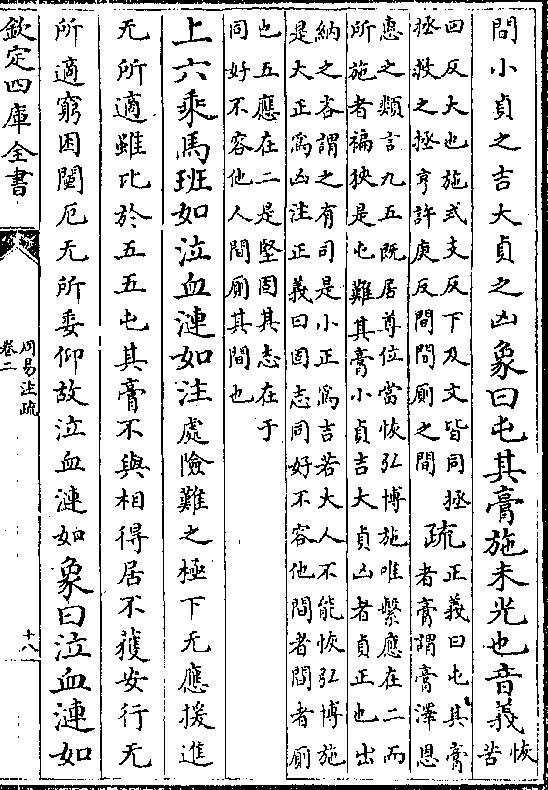 問小貞之吉大貞之凶象曰屯其膏施未光也音義恢苦
回反大也施式支反下及文皆同拯
拯救之拯亨許庚反間間厠之間疏正義曰屯其膏
者膏謂膏澤恩
惠之類言九五既居尊位當恢弘博施唯繫應在二而
所施者褊狹是屯難其膏小貞吉大貞凶者貞正也出
納之吝謂之有司是小正為吉若大人不能恢弘博施
是大正為凶注正義曰固志同好不容他間者間者厠
也五應在二是堅固其志在于
同好不容他人間厠其間也
上六乘馬班如泣血漣如注處險難之極下无應援進
无所適雖比於五五屯其膏不與相得居不獲安行无
所適窮困闉厄无所委仰故泣血漣如象曰泣血漣如
欽定四庫全書
周易注疏
卷二
十八